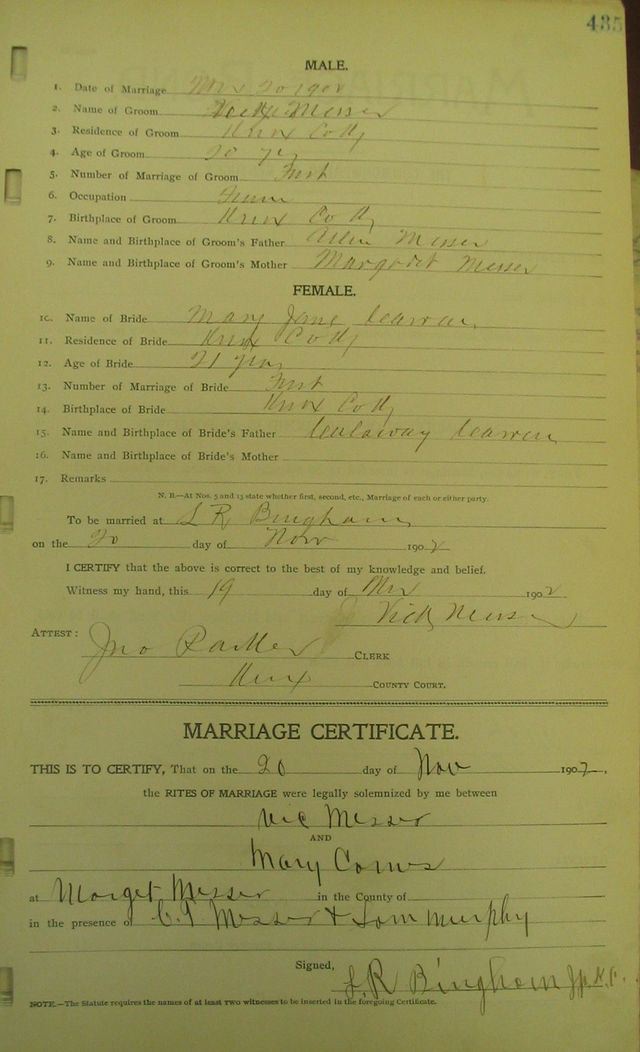 435
MALE.
1. Date of Marriage Nov 20 1902
2. Name of Groom Messer
3. Residence of Groom Knox Co Ky
4. Age of Groom 20 yrs
5. Number of Marriage of Groom First
6. Occupation Farm
7. Birthplace of Groom Knox Co Ky
8. Name and Birthplace of Groom's Father Allen Messer
9. Name and Birthplace of Groom's Mother Margaret Messer
FEMALE.
10. Name of Bride Mary Jane
11. Residence of Bride Knox Co Ky
12. Age of Bride 21 yrs
13. Number of Marriage of Bride First
14. Birthplace of Bride Knox Co Ky
15. Name and Birthplace of Bride's Father
16. Name and Birthplace of Bride's Mother
17. Remarks
N. B.—At Nos. 5 and 13 state whether first, second, etc., Marriage of each or either party.
To be married at L R Bingham
on the 20 day of Nov 1902
I CERTIFY that the above is correct to the best of my knowledge and belief.
Witness my hand, this 19 day of Nov 1902
Vick Messer
ATTEST: Jno Parker CLERK
Knox COUNTY COURT.
MARRIAGE CERTIFICATE.
THIS IS TO CERTIFY, That on the 20 day of Nov 1902.
the RITES OF MARRIAGE were legally solemnized by me between
Vic Messer
AND
Mary
at Marget Messer in the County of
in the presence of C. T Messer & Sam Murphy
Signed,
L. R Bingham J.P.K.C.
NOTE.—The Statute requires the names of at least two witnesses to be inserted in the foregoing Certificate.